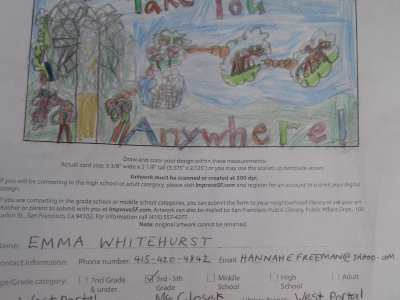 Take You
Anywhere!
Draw and color your design within these measurements:
Actual card size: 3 3/8" wide x 2 1/8" tall (3.375" x 2.125") or you may use the scaled up template above.
Artwork must be scanned or created at 300 dpi.
If you will be competing in the high school or adult category, please visit ImproveSF.com and register for an account to submit your digital
design.
If you are competing in the grade school or middle school categories, you can submit the form to your neighborhood library or ask your
teacher or parent to submit it to ImproveSF.com. Artwork can also be mailed to: San Francisco Public Library, Public Affairs Dept., 100
Larkin St., San Francisco, Ca 94102. For information call (415) 557-4277.
Note: original artwork cannot be returned.
Name: EMMA WHITEHURST
Contact information: Phone number: 415-420-4842 Email: HANNAHEFREEMAN@YAHOO.COM
Age/Grade category: 2nd Grade & under 3rd - 5th Grade Middle School High School Adult
West Portal Ms Closek West Portal